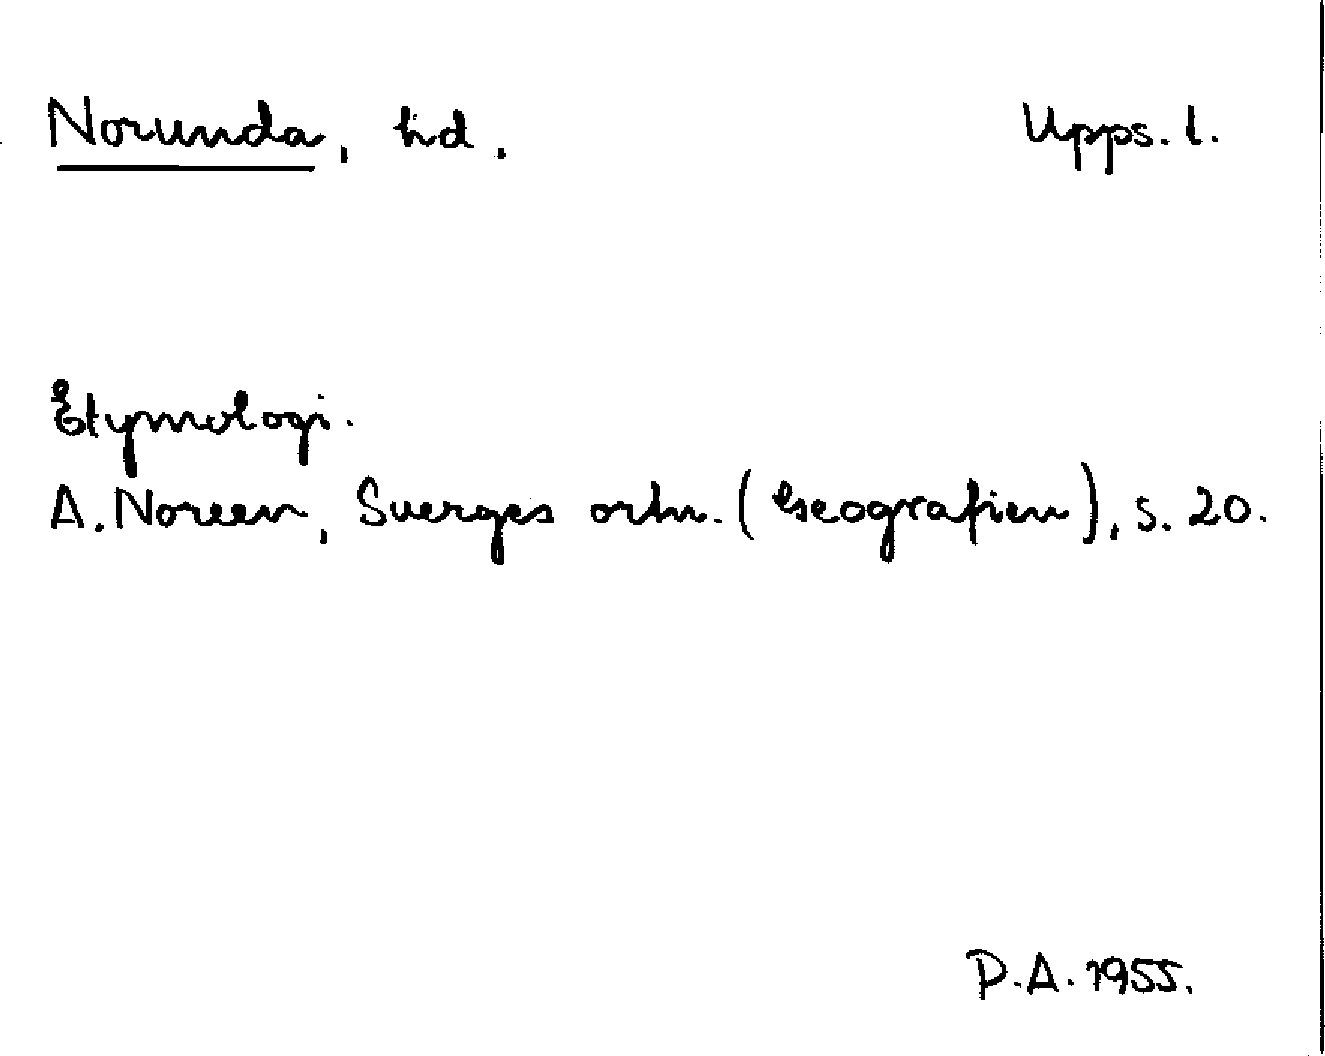 Norunda, hd. Upps. l.
Etymologi.
A. Noreen, Sverges ortn. (Geografien), s. 20.
P.A. 1955.